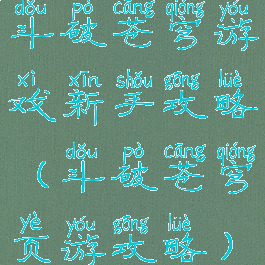 dǒu pò cāng qióng yóu
斗破苍穹游
xì xīn shǒu gōng lüè
戏新手攻略
dǒu pò cāng qióng
（斗破苍穹
yè yóu gōng lüè
页游攻略）